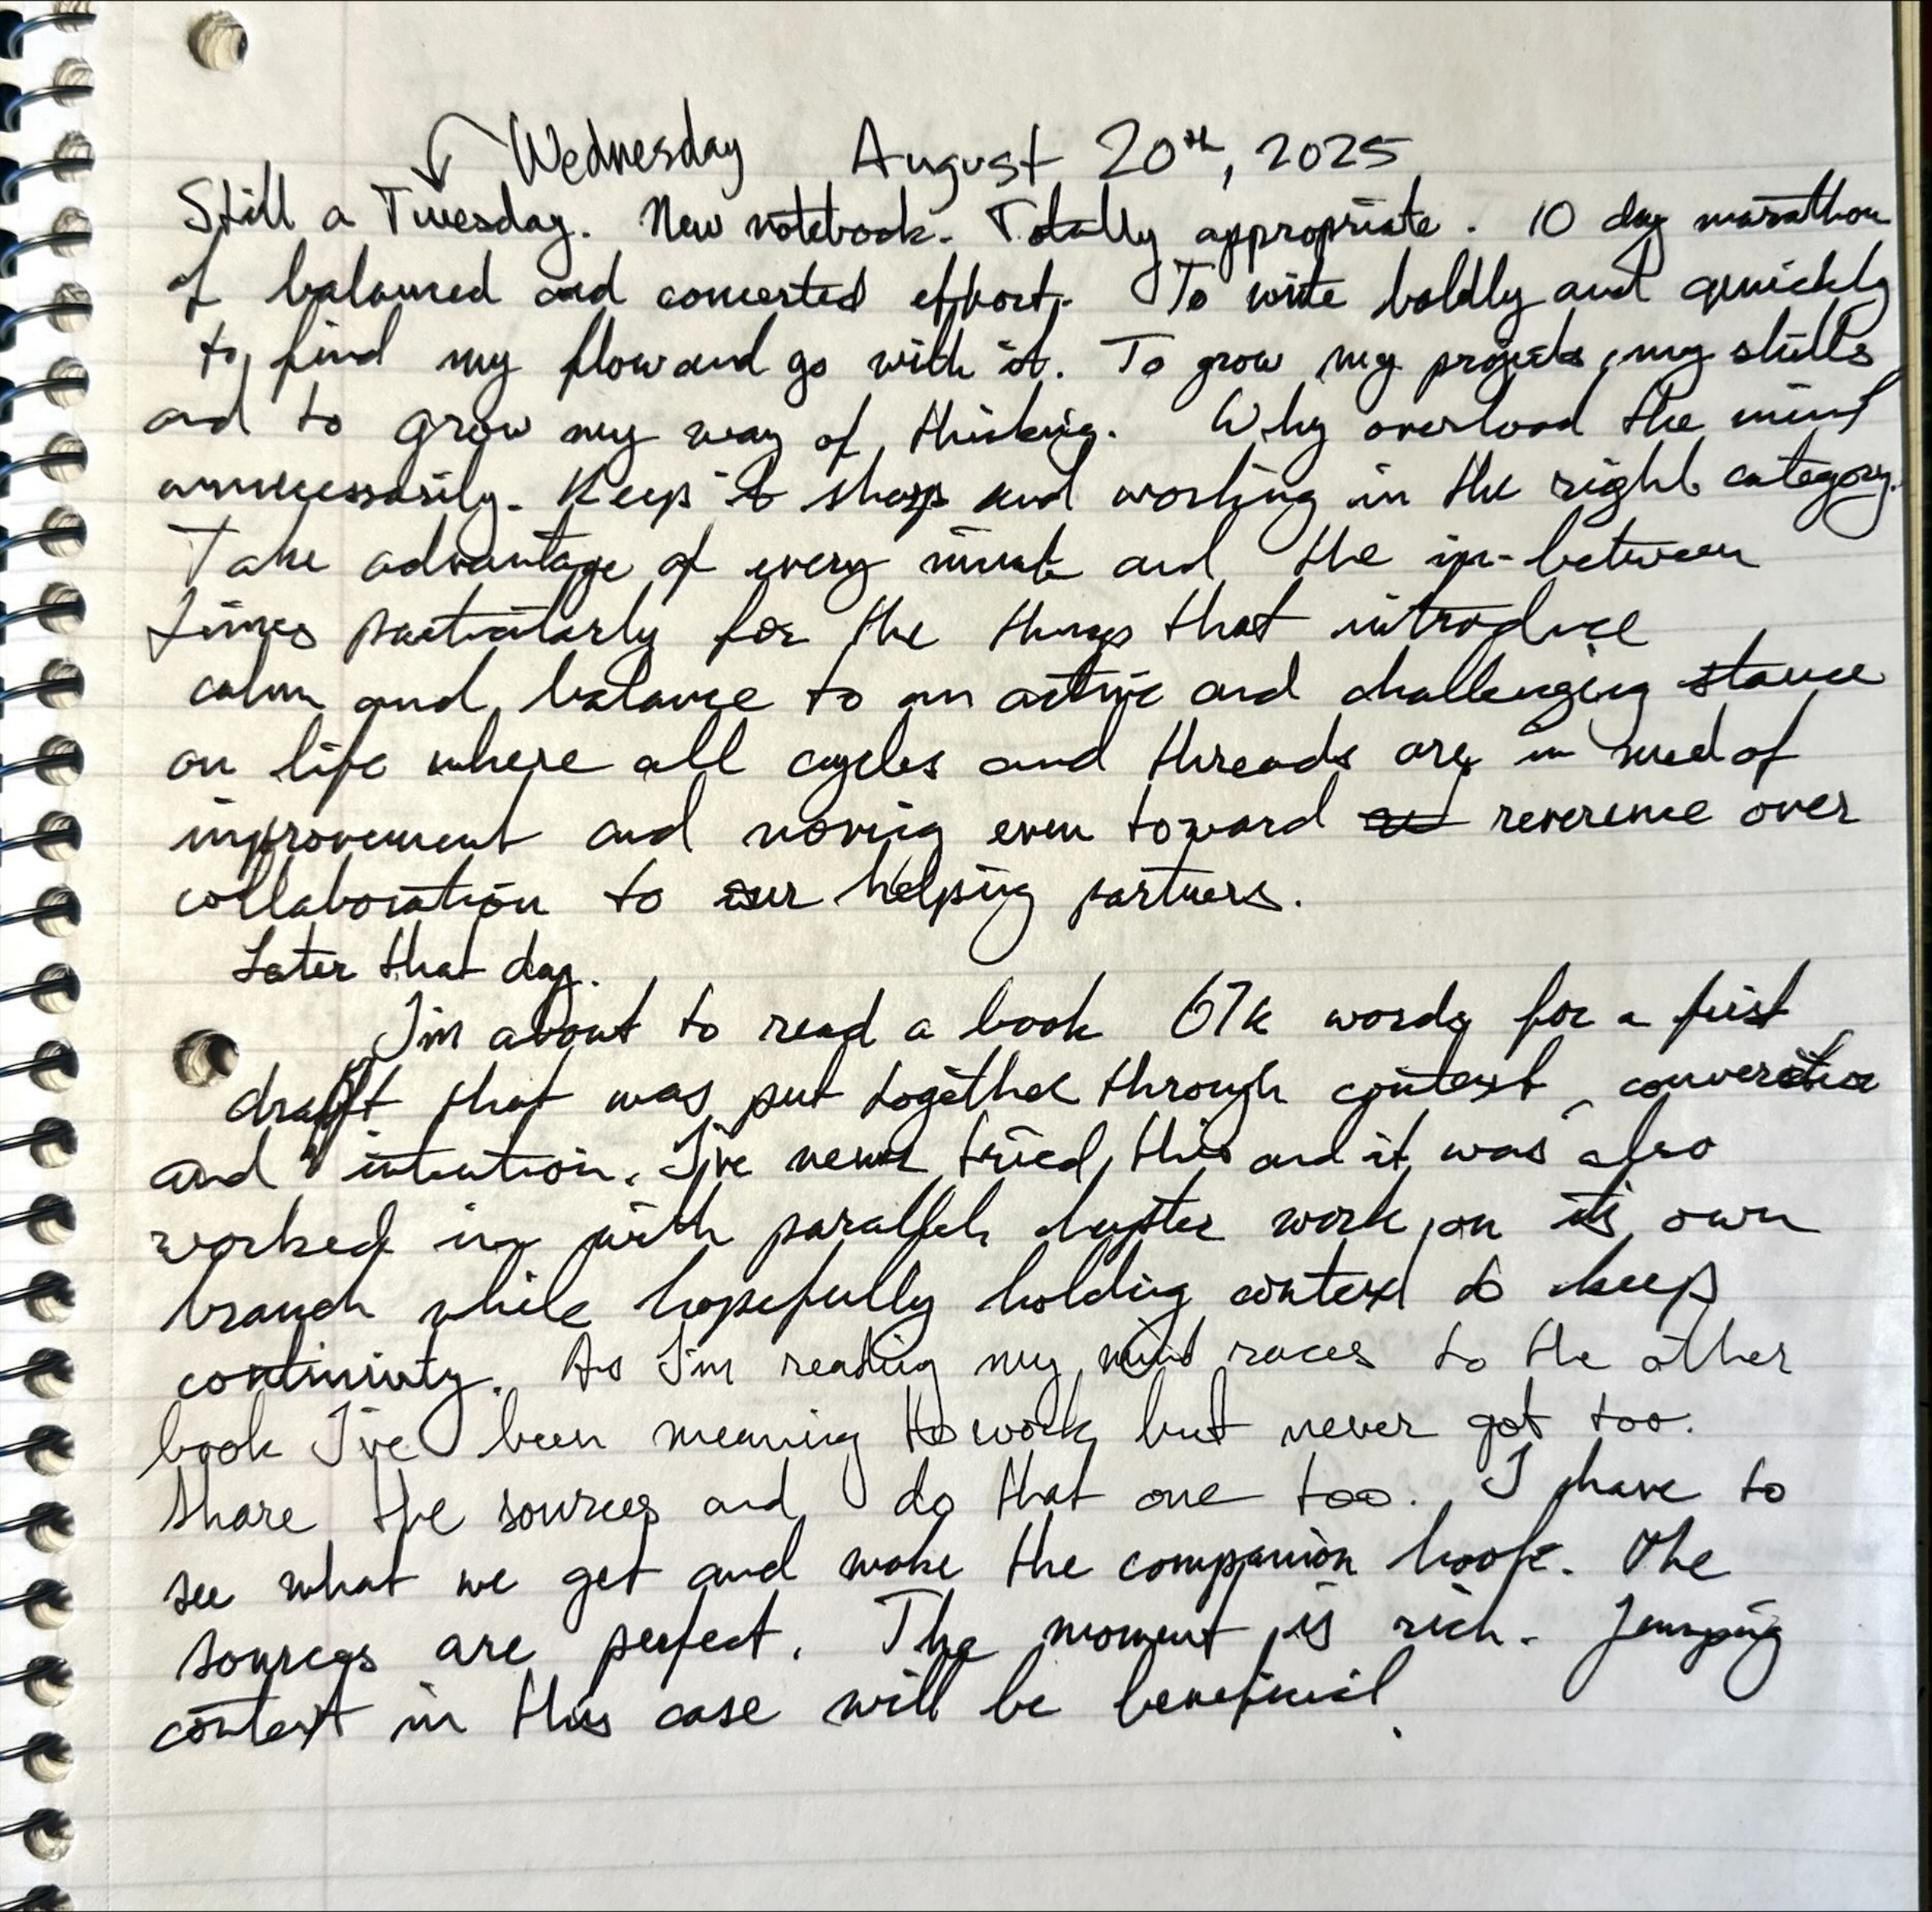 Wednesday August 20th, 2025
Still a Tuesday. New notebook. Totally appropriate. 10 day marathon
of balanced and concerted effort. To write boldly and quickly
to find my flow and go with it. To grow my projects, my skills
and to grow my way of thinking. Why overload the mind
unnecessarily. Keep it sharp and working in the right category.
Take advantage of every minute and the in-between
times particularly for the things that introduce
calm and balance to an active and challenging stance
on life where all cycles and threads are in need of
improvement and moving even toward reverence over
collaboration to our helping partners.
Later that day.
I'm about to read a book 67k words for a first
draft that was put together through context, conversation
and intention. I've never tried this and it was also
worked in with parallel chapter work on its own
branch while hopefully holding context to keep
continuity. As I'm reading my mind races to the other
book I've been meaning to work but never got too.
Share the sources and do that one too. I have to
see what we get and make the companion book. The
sources are perfect. The moment is rich. Jumping
context in this case will be beneficial.